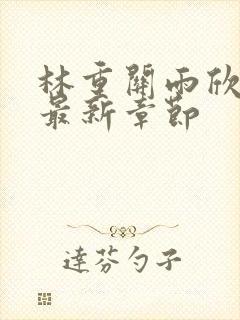 林重關雨欣
最新章節
達芬勺子